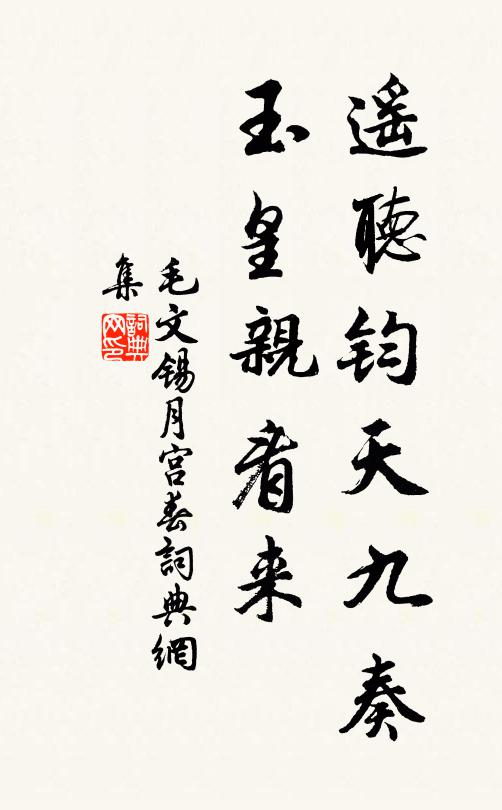 遥聽钧天九奏
玉皇親看来
毛文锡月宫春詞典網
集
詞典
网印